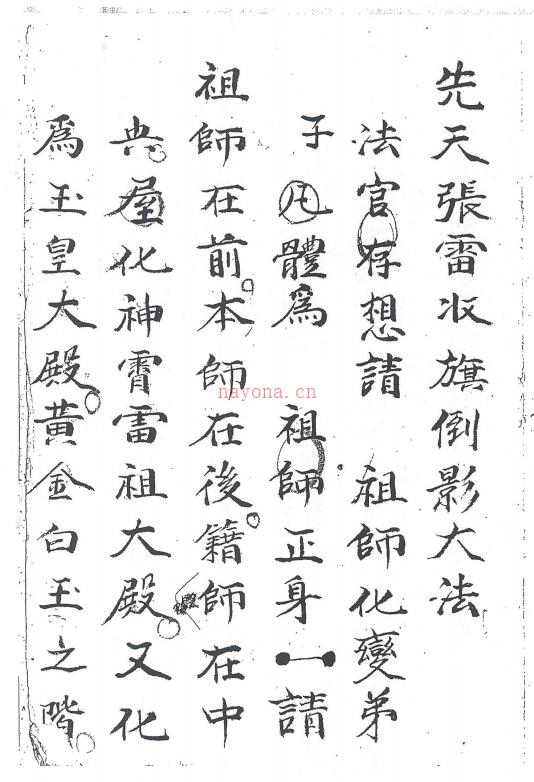 先天張雷旗倒影大法
法官存想請 祖師化變弟
子凡體爲 祖師正身一請
祖師在前本師在後籍師在中
典屋化神霄雷祖大殿又化
爲玉皇大殿黃金白玉之階
nayona.cn